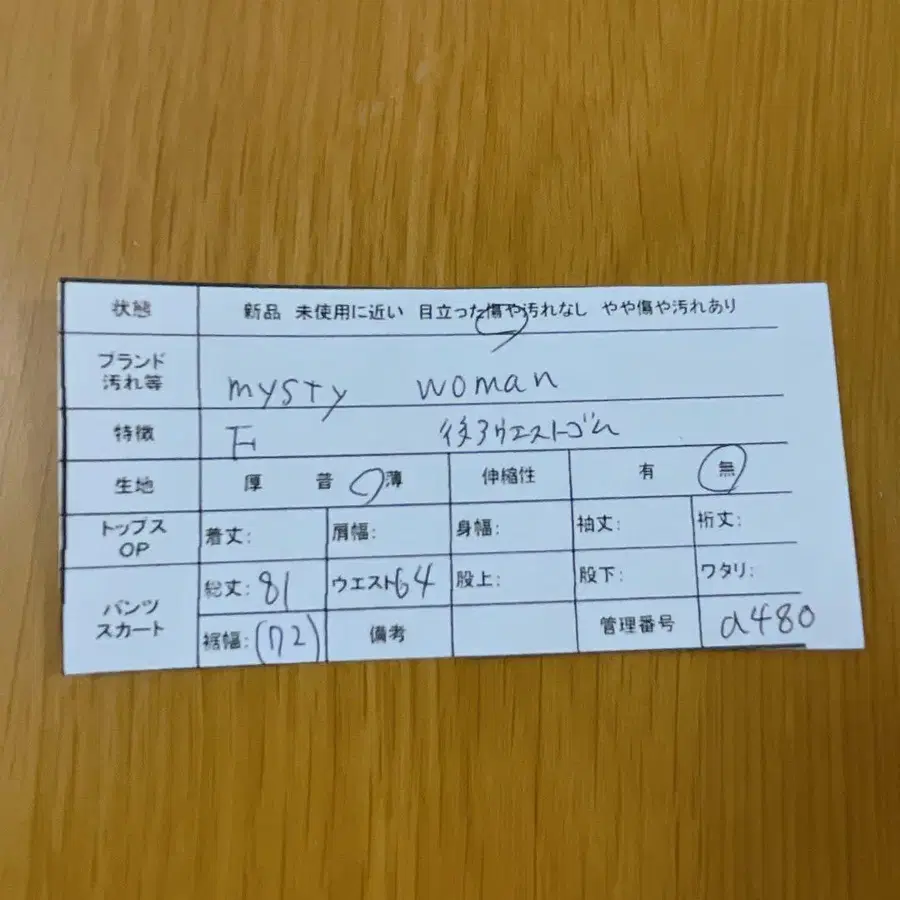 状態 新品 未使用に近い 目立った傷や汚れなし やや傷や汚れあり
ブランド
汚れ等 mysty woman
特徴 F 後ろウエストゴム
生地 厚 普 薄 伸縮性 有 無
トップス
OP 着丈: 肩幅: 身幅: 袖丈: 裄丈:
パンツ
スカート 総丈: 81 ウエスト64 股上: 股下: ワタリ:
裾幅: (72) 備考 管理番号 a480